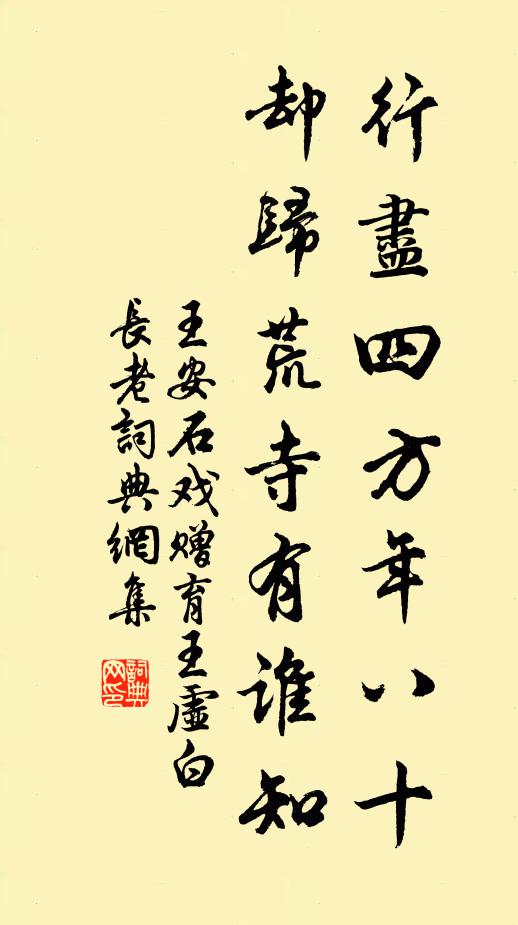 行盡四方年八十
却歸荒寺有誰知
王安石戏赠育王虛白
長老詞典網集
詞典网印